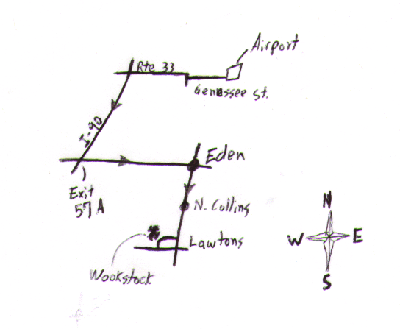 Airport
Rte 33
Genessee St.
I-90
Eden
Exit
57A
N. Collins
Lawtons
Wookstock
N
W
E
S